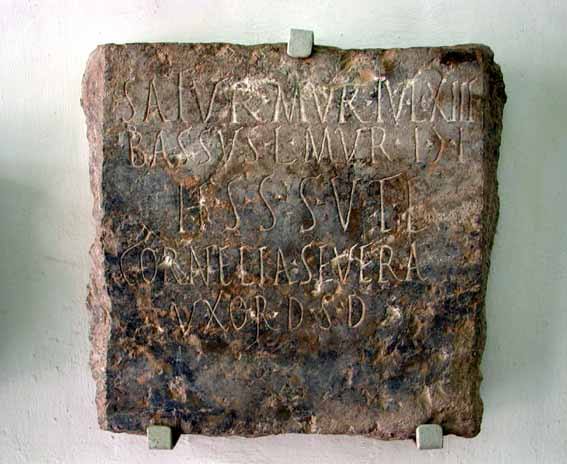 SATVR·MVR·IVLXIII
BASSVS·L·MVR·I·
H·S·S·S·V·T·L
CORNELIA·SEVERA
VXOR·D·S·D